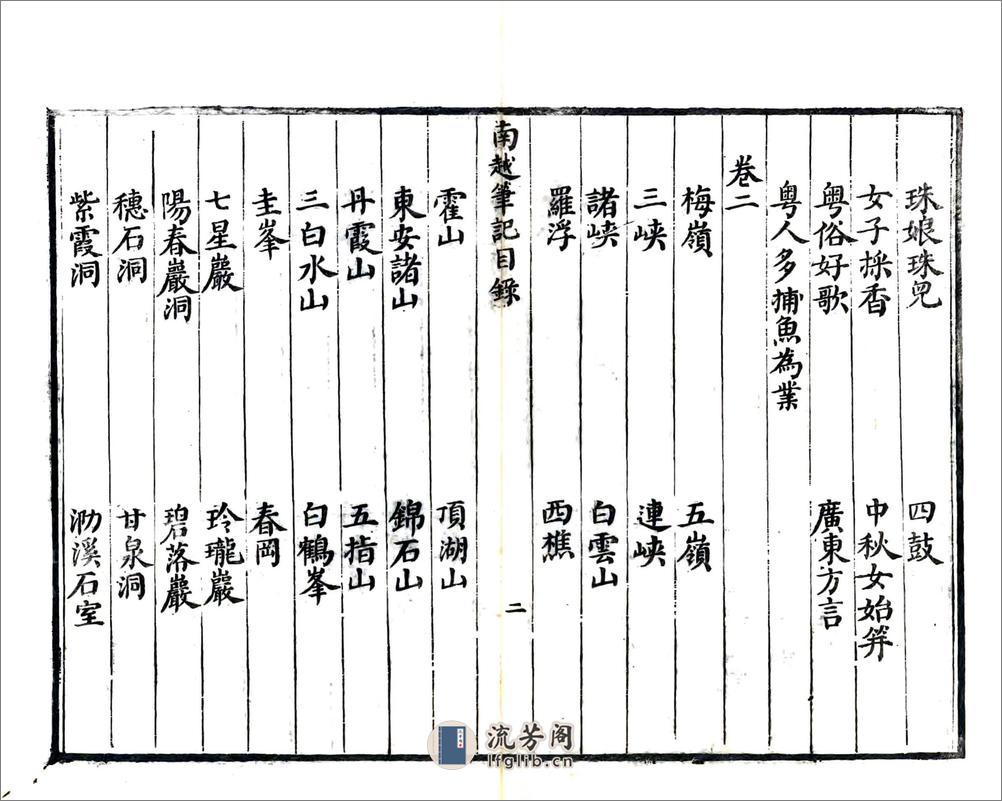 珠娘珠兒 四鼓
女子採香 中秋女始笄
粵俗好歌 廣東方言
粵人多捕魚為業
卷二
梅嶺 五嶺
三峽 連峽
諸峽 白雲山
羅浮 西樵
南越筆記目錄 二
霍山 頂湖山
東安諸山 錦石山
丹霞山 五指山
三白水山 白鶴峯
圭峯 春岡
七星巖 玲瓏巖
陽春巖洞 碧落巖
穗石洞 甘泉洞
紫霞洞 泐溪石室
流芳阁
lfglib.cn